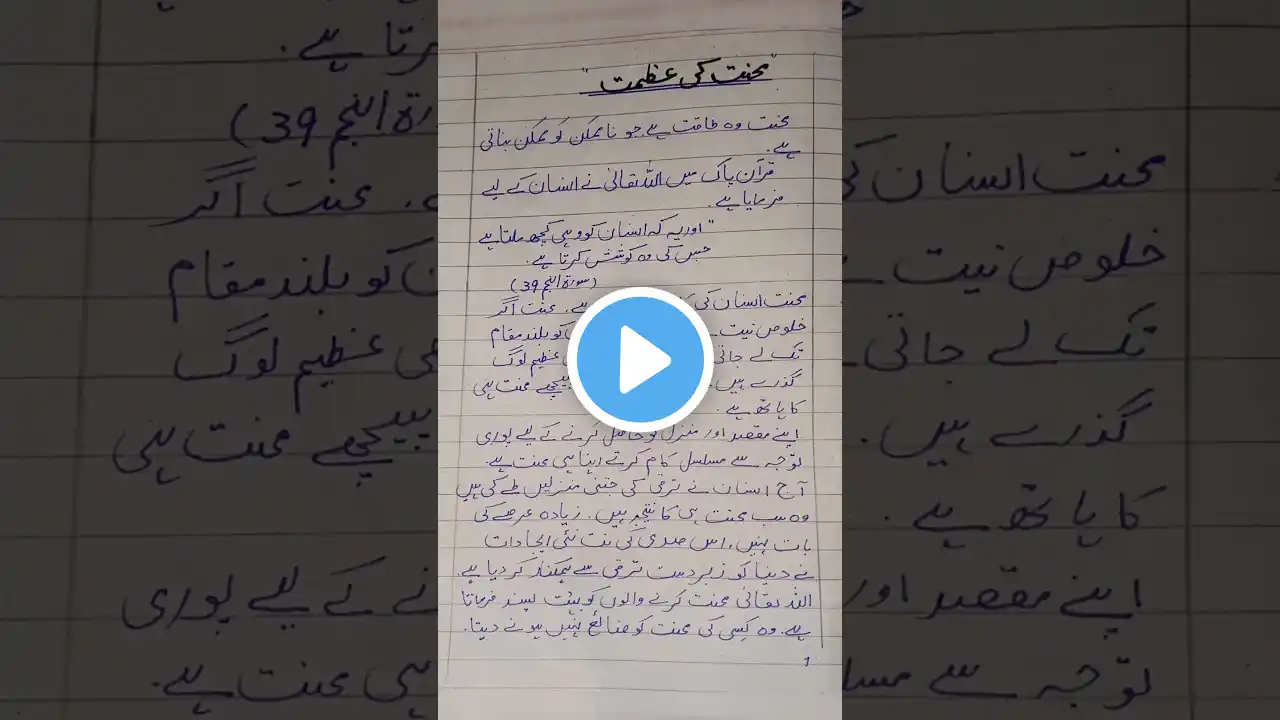 "محنت کی عظمت"
محنت وہ طاقت ہے جو ناممکن کو ممکن بناتی
ہے۔
قرآن پاک میں اللہ تعالیٰ نے انسان کے لیے
فرمایا ہے۔
"اور یہ کہ انسان کو وہی کچھ ملتا ہے
جس کی وہ کوشش کرتا ہے۔
(سورۃ النجم 39)
محنت انسان کی ہے۔ محنت اگر
خلوص نیت کو بلند مقام
تک لے جاتی عظیم لوگ
گذرے ہیں۔ پیچھے محنت ہی
کا ہاتھ ہے۔
اپنے مقصد اور منزل کو حاصل کرنے کے لیے پوری
توجہ سے مسلسل کام کرتے رہنا ہی محنت ہے۔
آج انسان نے ترقی کی جتنی منزلیں طے کی ہیں
وہ سب محنت ہی کا نتیجہ ہیں۔ زیادہ عرصے کی
بات نہیں، اس صدی کی نت نئی ایجادات
نے دنیا کو زبردست ترقی سے ہمکنار کر دیا ہے۔
اللہ تعالیٰ محنت کرنے والوں کو بہت پسند فرماتا
ہے۔ وہ کسی کی محنت کو ضائع نہیں ہونے دیتا۔
1